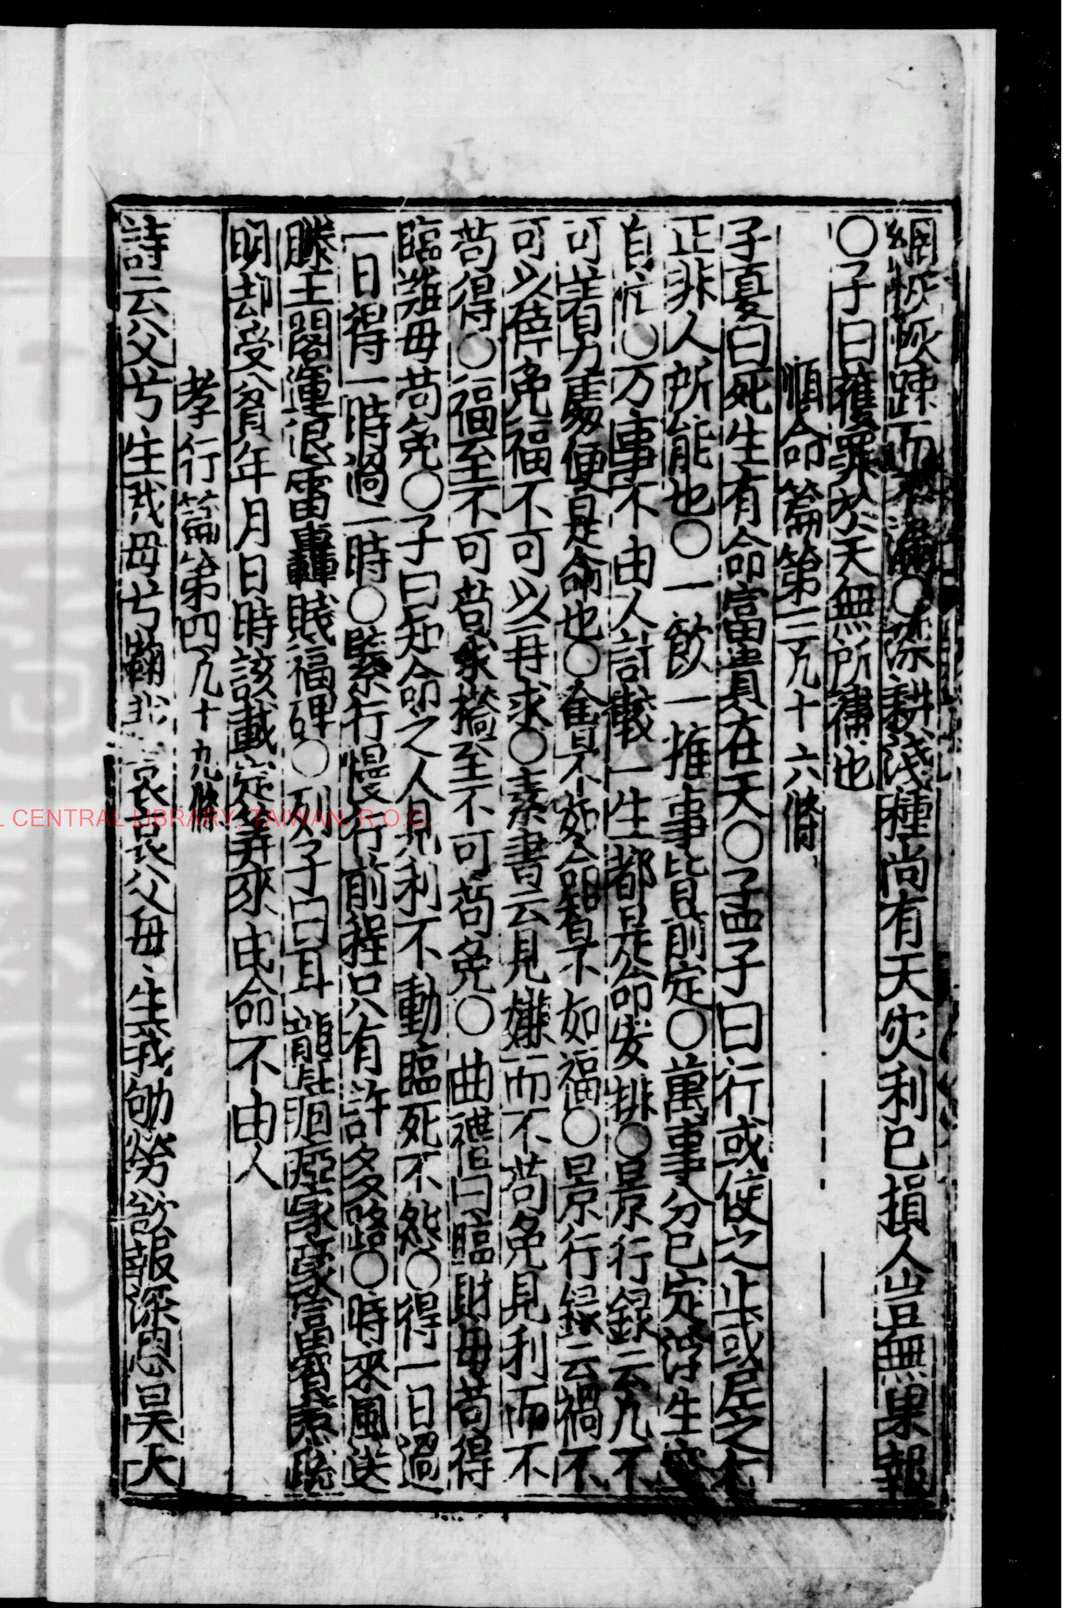 網恢恢踈而不漏〇深耕淺種尚有天灾利己損人豈無果報
〇子曰獲罪扵天無所禱也
順命篇第三凡十六條
子夏曰死生有命富貴在天〇孟子曰行或使之止或尼之行
正非人所能也〇一飲一啄事皆前定〇萬事分已定浮生空
自忙〇万事不由人計較一生都是命安排〇景行録云凡不
可着力處便是命也〇會不如命智不如福〇景行録云禍不
可以倖免福不可以再求〇素書云見嫌而不苟免見利而不
苟得〇福至不可苟求禍至不可苟免〇曲禮曰臨財毋苟得
臨難毋苟免〇子曰知命之人見利不動臨死不怨〇得一日過
一日得一時過一時〇緊行慢行前程只有許多路〇時來風送
滕王閣運退雷轟賤福碑〇列子曰耳聾痼瘂家豪富智慧聰
明却受貧年月日時該載定筭來由命不由人
孝行篇第四凡十九條
詩云父兮生我母兮鞠我哀哀父母生我劬勞欲報深恩昊天
CENTRAL LIBRARY, TAIWAN, R.O.C.